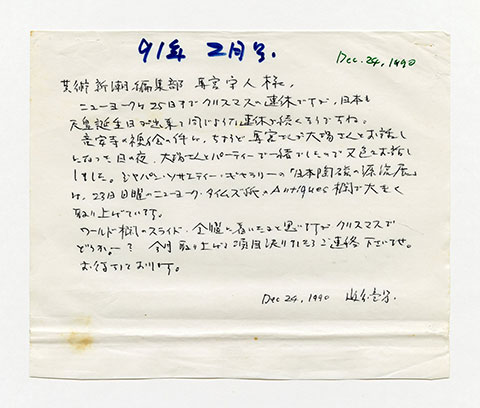 91年 2月号.
Dec. 24, 1990
芸術新潮編集部 真宮守人様,
ニューヨークは25日までクリスマスの連休ですが,日本も
天皇誕生日が出来て同じような連休が続くそうですね。
竜安寺の襖絵の件は,ちょうど真宮さんが大場さんとお話し
になった日の夜,大場さんとパーティーで一緒でしたので又色々お話
しました。ジャパン・ソサエティー・ギャラリーの「日本陶磁の源流展」
は,23日日曜のニューヨーク・タイムズ紙のAntiques欄で大きく
取り上げています。
ワールド欄のスライド,金曜に着いたと思いますがクリスマスで
どうか—? 今月取り上げる項目決りましたらご連絡下さいませ。
お待ちしております。
Dec 24, 1990